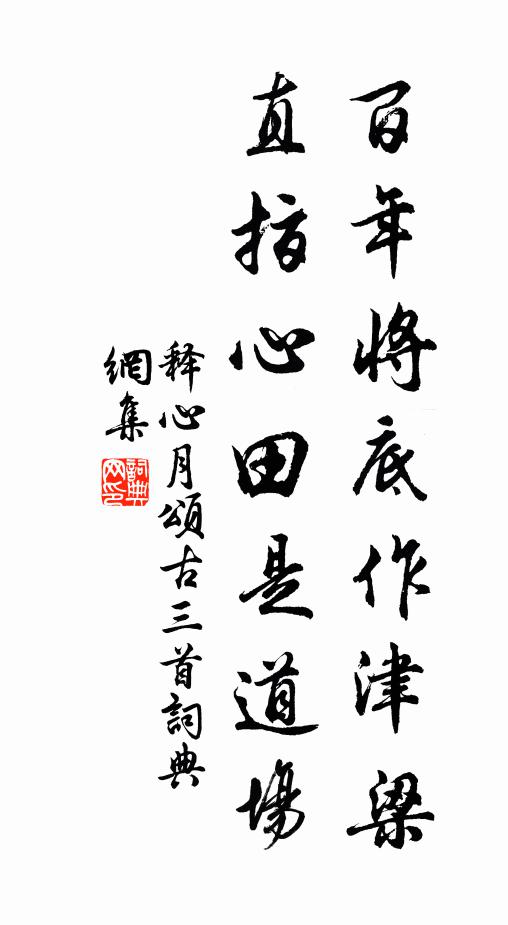 百年將底作津梁
直指心田是道場
释心月頌古三首詞典
網集
詞典
网印